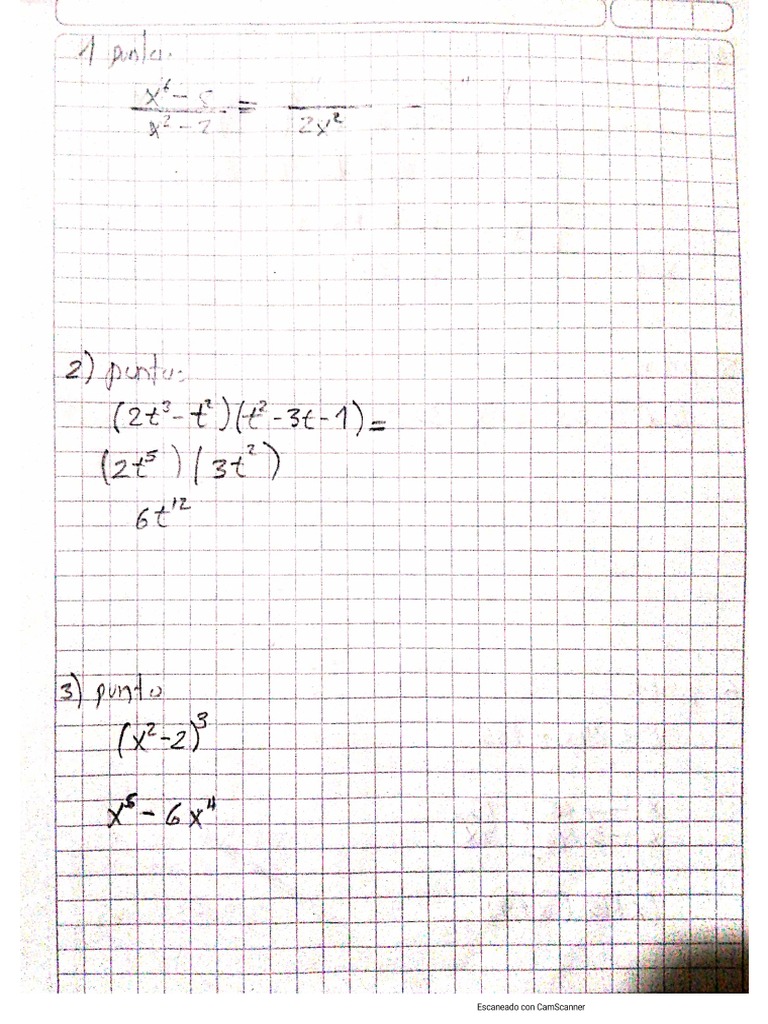 1 punto:
x⁶ - 5 / x² - 2 = / 2x²
2) punto:
(2t³ - t²)(t² - 3t - 1) =
(2t⁵)(3t²)
6t¹²
3) punto
(x² - 2)³
x⁵ - 6x⁴
Escaneado con CamScanner